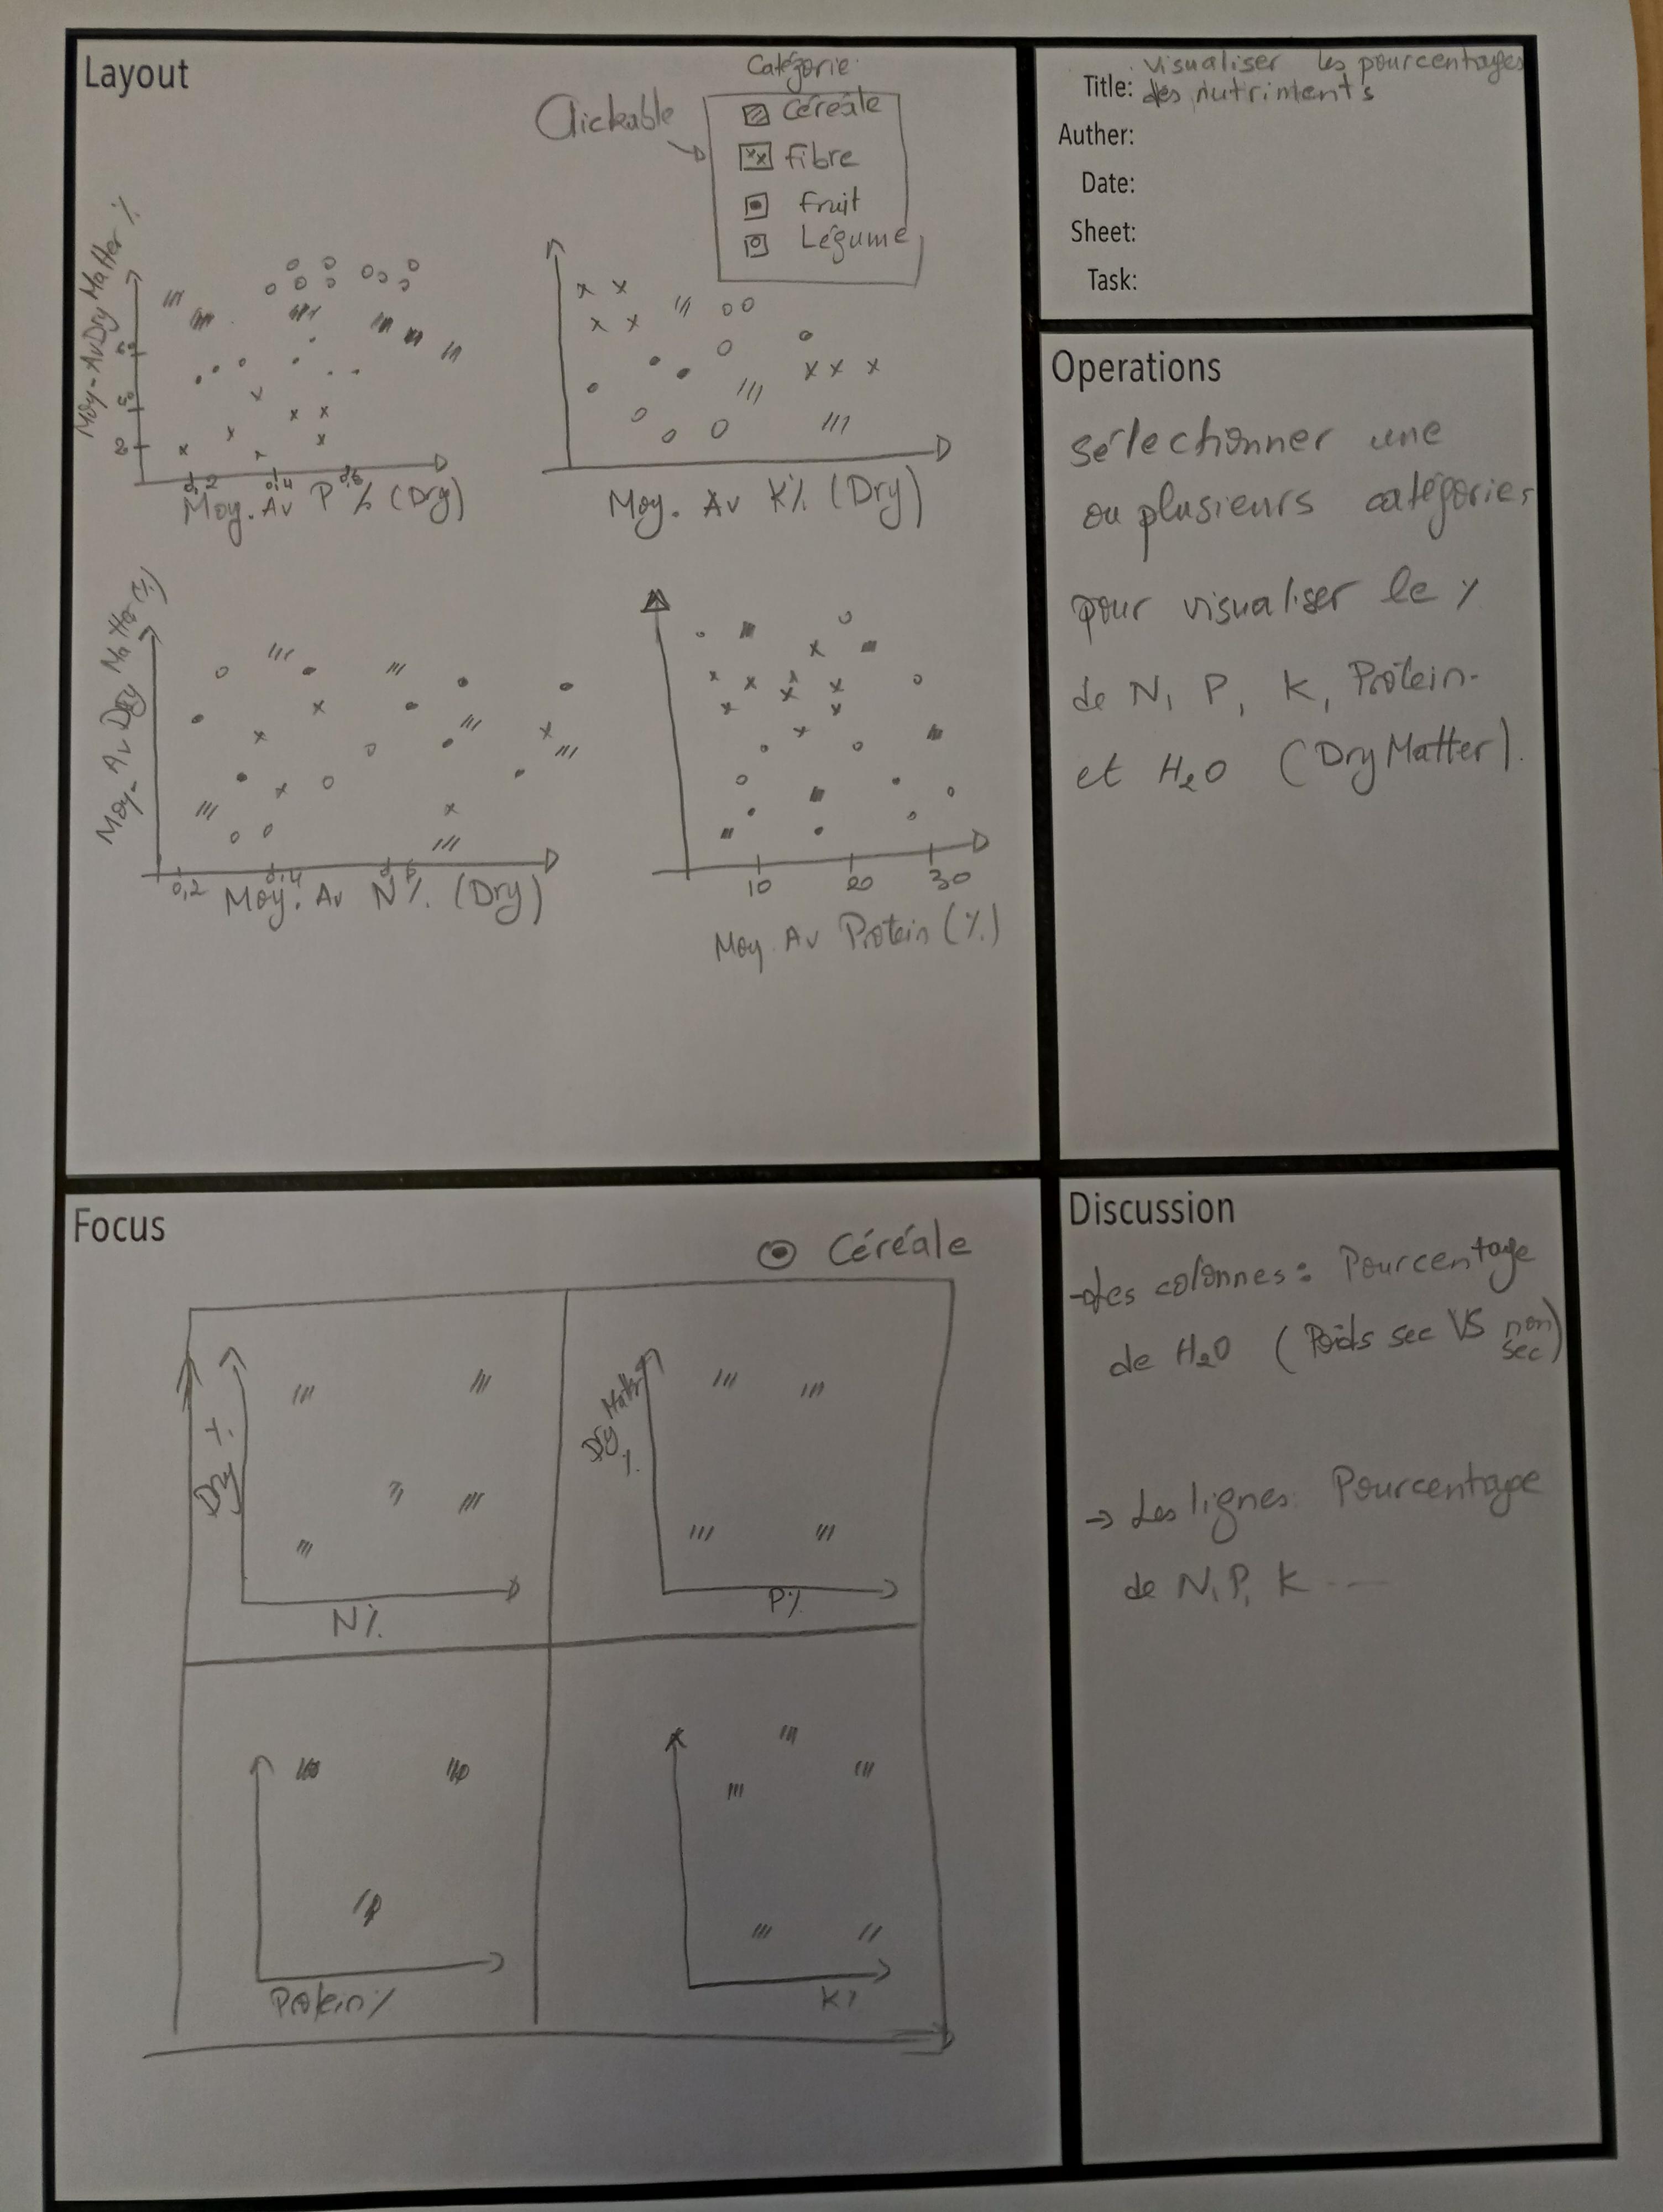 Layout
Catégorie:
Clickable
Céréale
fibre
fruit
Légume
Moy-AvDry Matter %
2
0,2
0,4
0,6
Moy. Av P% (Dry)
Moy. Av K% (Dry)
Moy- Av Dry Matter (%)
0,2
0,4
Moy. Av N%. (Dry)
10
20
30
Moy. Av Protein (%)
Title: visualiser les pourcentages
des nutriments
Auther:
Date:
Sheet:
Task:
Operations
sélectionner une
ou plusieurs catégories
pour visualiser le %
de N, P, K, Protein.
et H2O (Dry Matter).
Focus
Céréale
Dry %
N%
Dry Matter
%
P%
Protein%
K%
Discussion
-Les colonnes: Pourcentage
de H2O (Poids sec VS non
sec)
→ Les lignes: Pourcentage
de N, P, K ----